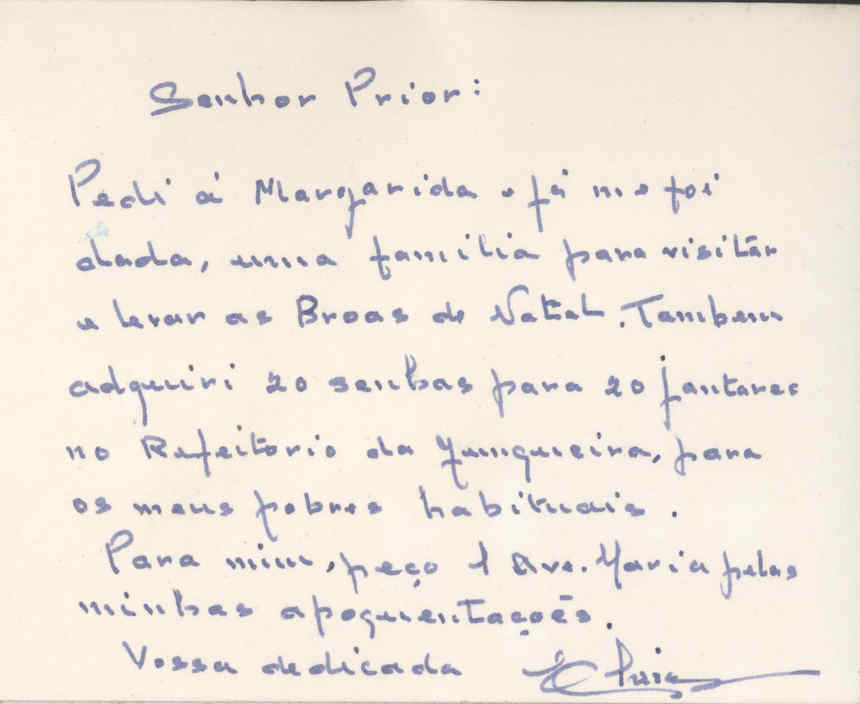 Senhor Prior:
Pedi á Margarida e já me foi
dada, uma familia para visitar
e levar as Broas de Natal. Tambem
adquiri 20 senhas para 20 jantares
no Refeitorio da Junqueira, para
os meus pobres habituais.
Para mim, peço 1 Ave. Maria pelas
minhas apoquentações.
Vossa dedicada